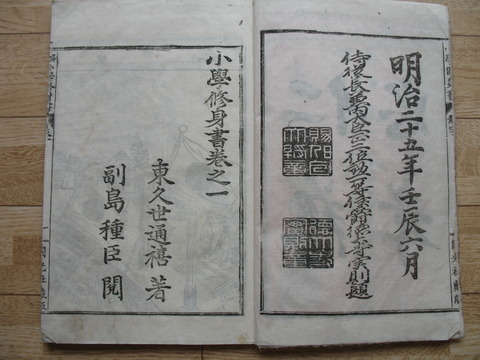 明治二十五年壬辰六月
侍從長兼內大臣正二位勲一等侯爵德大寺實則題
小學修身書卷之一
東久世通禧 著
副島種臣 閱